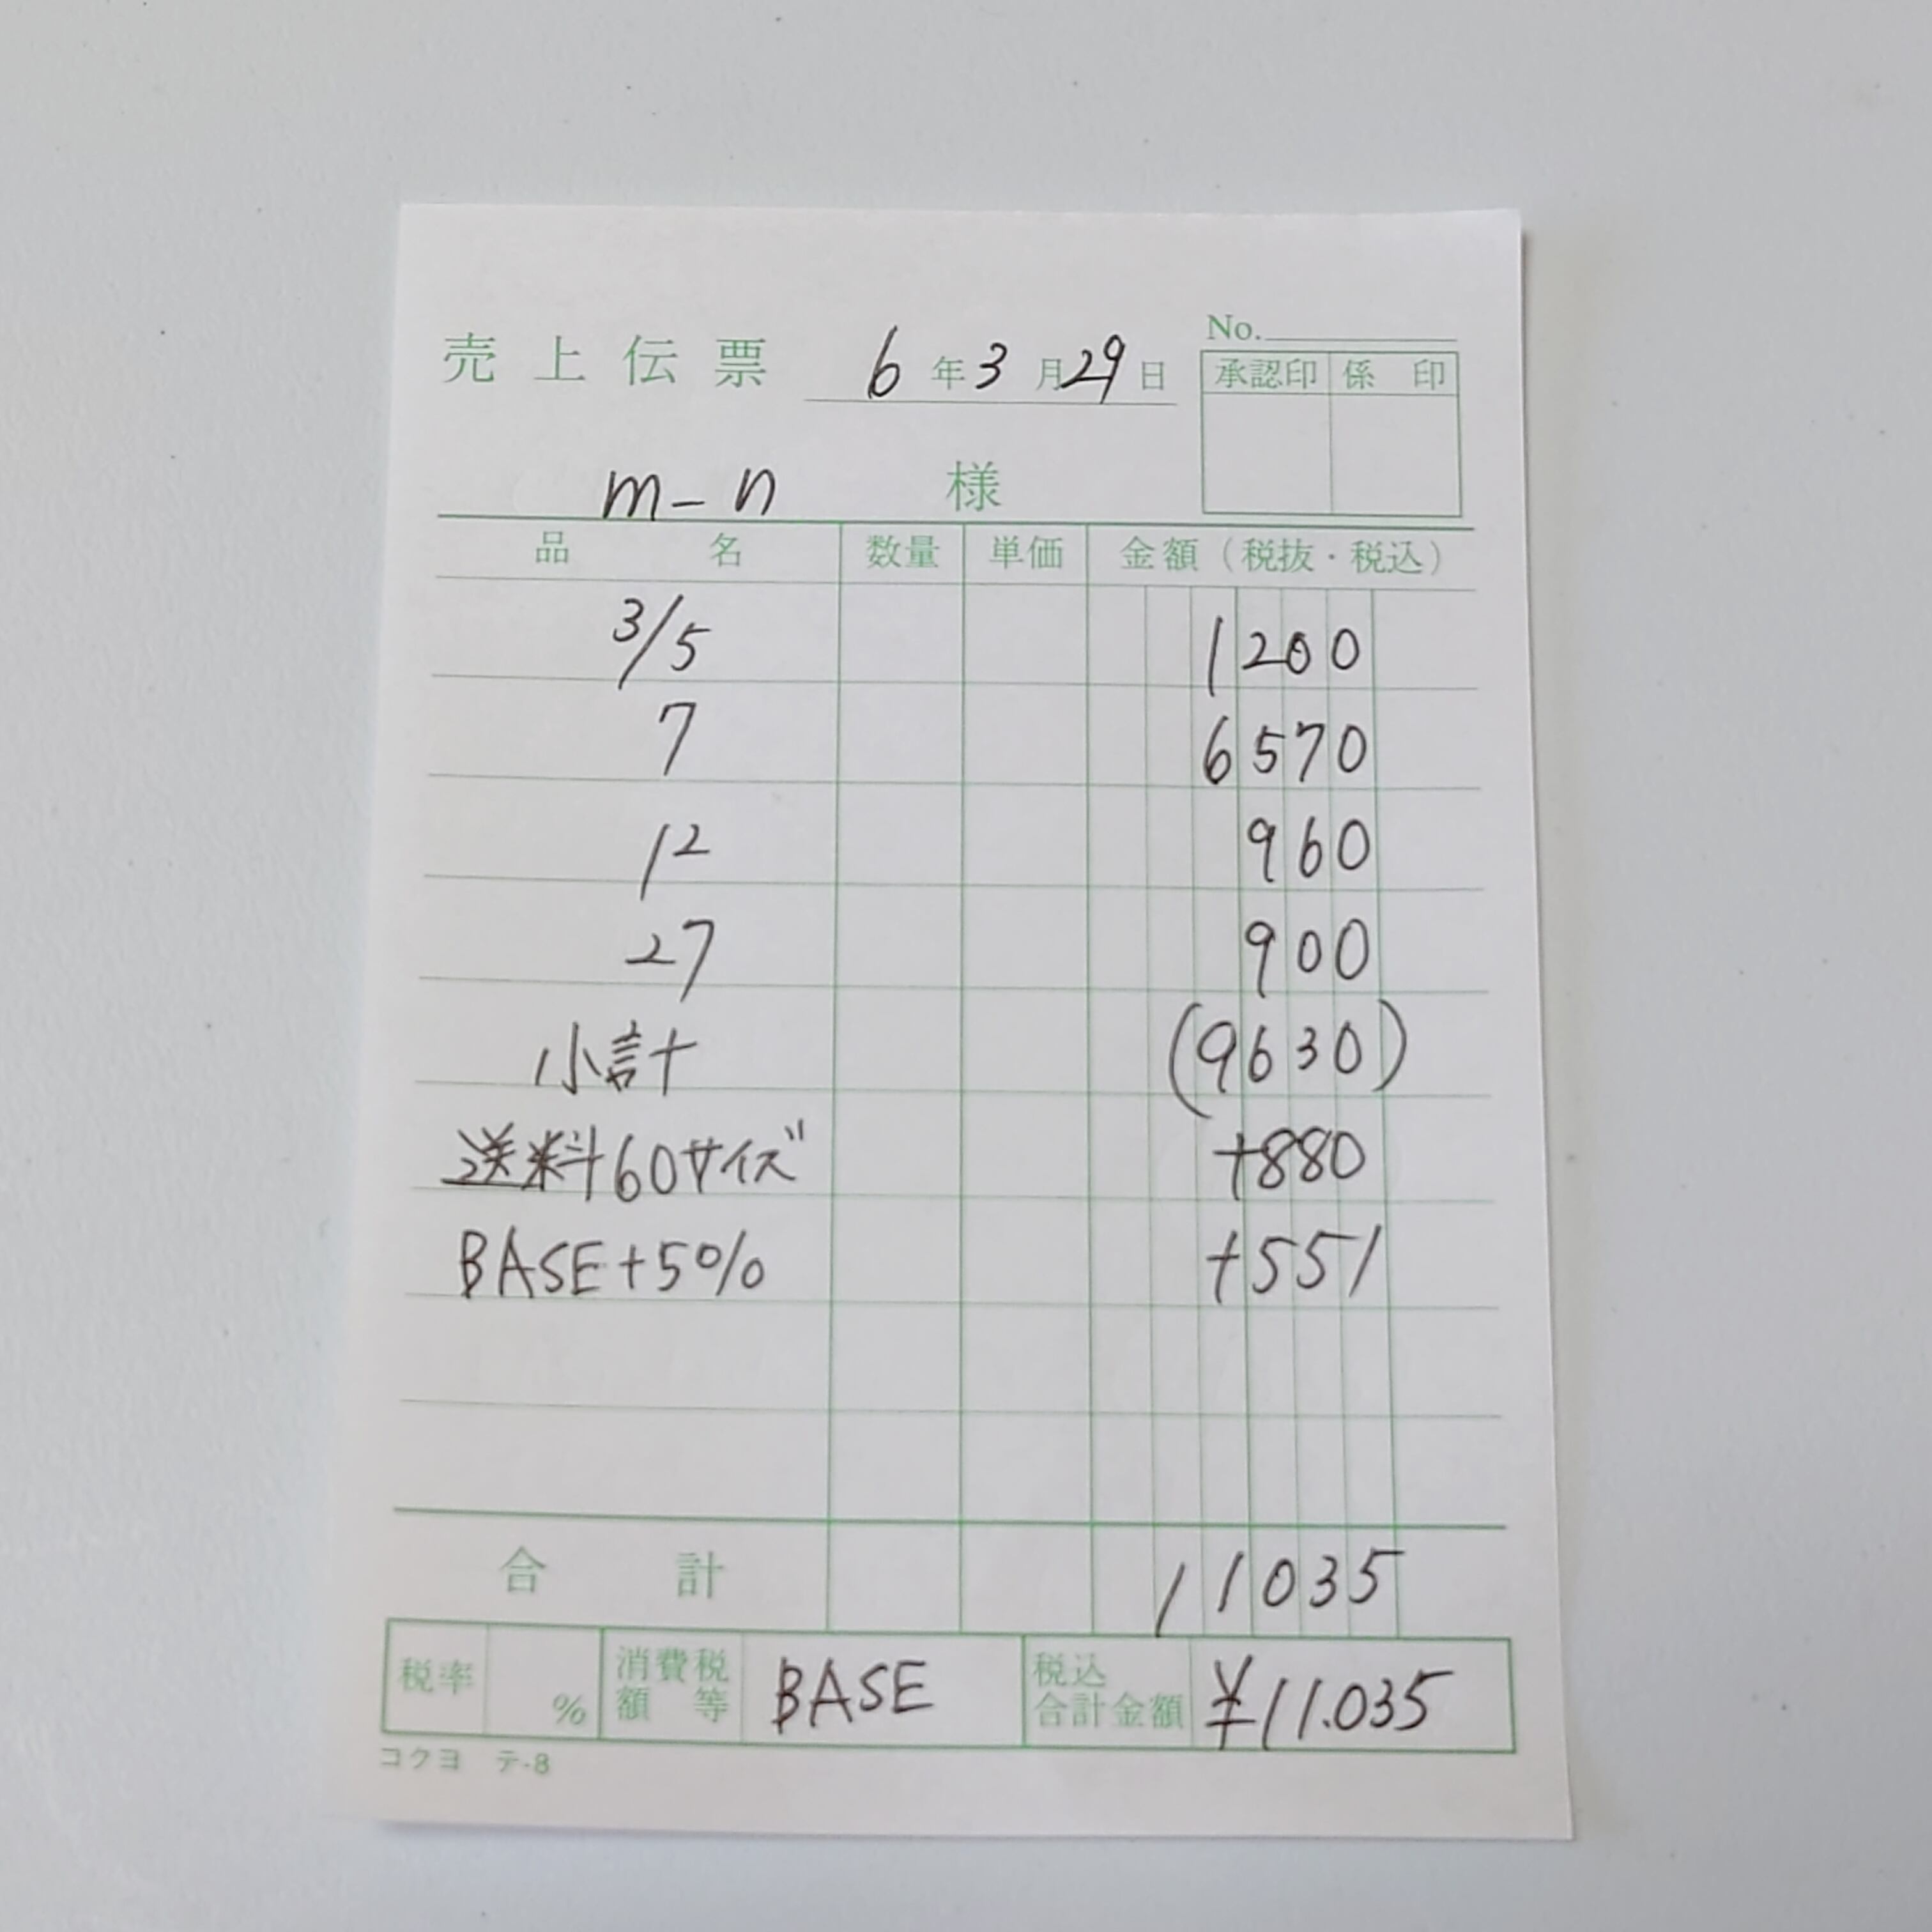 No.
売上伝票 6年3月29日
承認印 係印
m-n 様
品名 数量 単価 金額(税抜・税込)
3/5 1200
7 6570
12 960
27 900
小計 (9630)
送料60サイズ +880
BASE+5% +551
合計 11035
税率 % 消費税額等 BASE 税込合計金額 ¥11.035
コクヨ テ-8